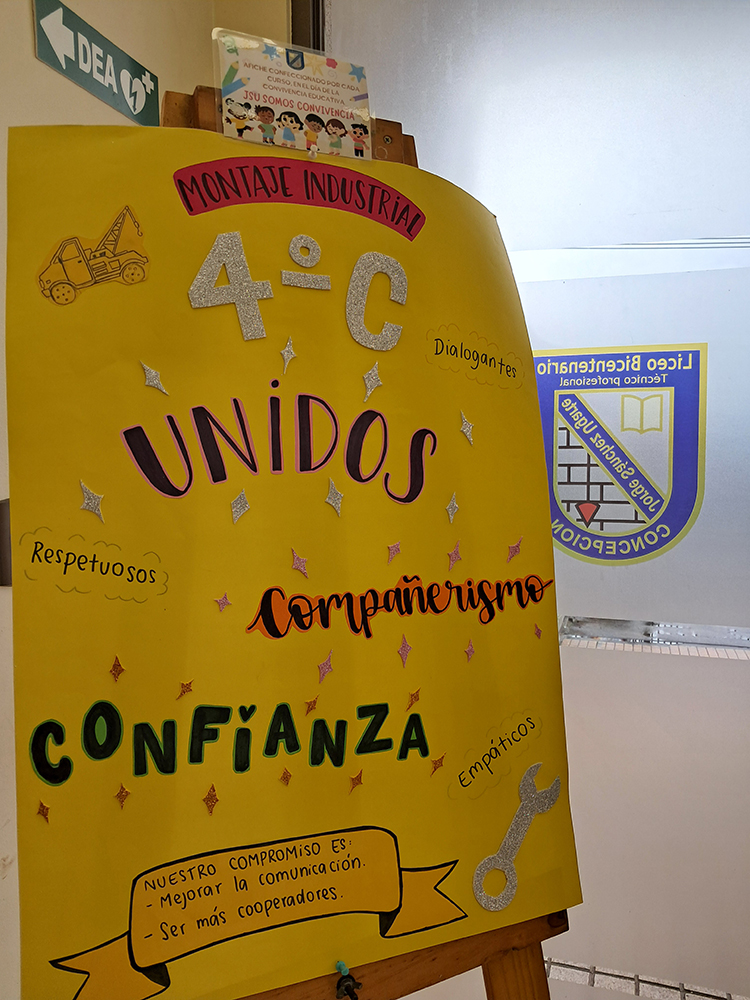 DEA
AFICHE CONFECCIONADO POR CADA
CURSO, EN EL DÍA DE LA
CONVIVENCIA EDUCATIVA
JSU SOMOS CONVIVENCIA
MONTAJE INDUSTRIAL
4º C
Dialogantes
UNIDOS
Respetuosos
Compañerismo
CONFIANZA
Empáticos
NUESTRO COMPROMISO ES:
- Mejorar la comunicación.
- Ser más cooperadores.
Liceo Bicentenario
Técnico profesional
Jorge Sánchez Ugarte
CONCEPCION